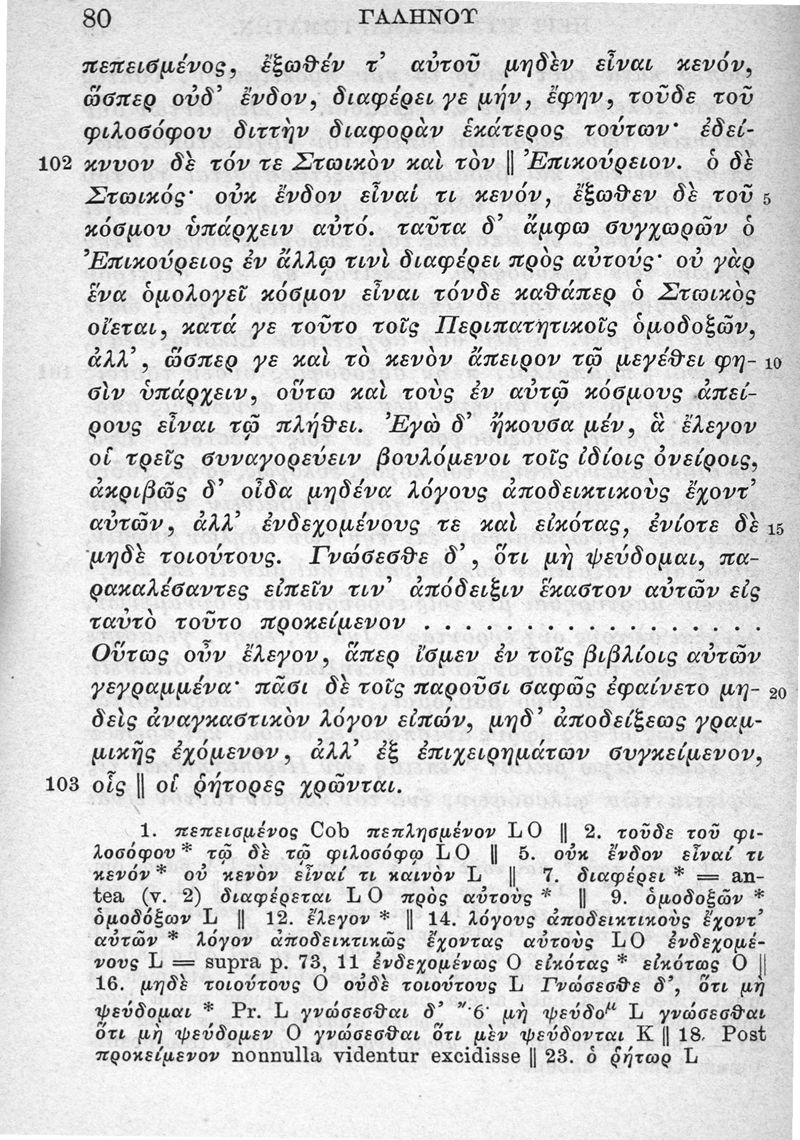 80 ΓΑΛΗΝΟΥ
πεπεισμένος, ἔξωθέν τ’ αὐτοῦ μηδὲν εἶναι κενόν,
ὥσπερ οὐδ’ ἔνδον, διαφέρει γε μήν, ἔφην, τοῦδε τοῦ
φιλοσόφου διττὴν διαφορὰν ἑκάτερος τούτων· ἐδεί-
102 κνυον δὲ τόν τε Στωικὸν καὶ τὸν || Ἐπικούρειον. ὁ δὲ
Στωικός· οὐκ ἔνδον εἶναί τι κενόν, ἔξωθεν δὲ τοῦ 5
κόσμου ὑπάρχειν αὐτό. ταῦτα δ’ ἄμφω συγχωρῶν ὁ
Ἐπικούρειος ἐν ἄλλῳ τινὶ διαφέρει πρὸς αὐτούς· οὐ γὰρ
ἕνα ὁμολογεῖ κόσμον εἶναι τόνδε καθάπερ ὁ Στωικὸς
οἴεται, κατά γε τοῦτο τοῖς Περιπατητικοῖς ὁμοδοξῶν,
ἀλλ’, ὥσπερ γε καὶ τὸ κενὸν ἄπειρον τῷ μεγέθει φη- 10
σὶν ὑπάρχειν, οὕτω καὶ τοὺς ἐν αὐτῷ κόσμους ἀπεί-
ρους εἶναι τῷ πλήθει. Ἐγὼ δ’ ἤκουσα μέν, ἃ ἔλεγον
οἱ τρεῖς συναγορεύειν βουλόμενοι τοῖς ἰδίοις ὀνείροις,
ἀκριβῶς δ’ οἶδα μηδένα λόγους ἀποδεικτικοὺς ἔχοντ’
αὐτῶν, ἀλλ’ ἐνδεχομένους τε καὶ εἰκότας, ἐνίοτε δὲ 15
μηδὲ τοιούτους. Γνώσεσθε δ’, ὅτι μὴ ψεύδομαι, πα-
ρακαλέσαντες εἰπεῖν τιν’ ἀπόδειξιν ἕκαστον αὐτῶν εἰς
ταὐτὸ τοῦτο προκείμενον . . . . . . . . . . . . . . . .
Οὕτως οὖν ἔλεγον, ἅπερ ἴσμεν ἐν τοῖς βιβλίοις αὐτῶν
γεγραμμένα· πᾶσι δὲ τοῖς παροῦσι σαφῶς ἐφαίνετο μη- 20
δεὶς ἀναγκαστικὸν λόγον εἰπών, μηδ’ ἀποδείξεως γραμ-
μικῆς ἐχόμενον, ἀλλ’ ἐξ ἐπιχειρημάτων συγκείμενον,
103 οἷς || οἱ ῥήτορες χρῶνται.
1. πεπεισμένος Cob πεπλησμένον LO || 2. τοῦδε τοῦ φι-
λοσόφου * τῷ δὲ τῷ φιλοσόφῳ LO || 5. οὐκ ἔνδον εἶναί τι
κενόν * οὐ κενὸν εἶναί τι καινὸν L || 7. διαφέρει * = an-
tea (v. 2) διαφέρεται LO πρὸς αὐτοὺς * || 9. ὁμοδοξῶν *
ὁμοδόξων L || 12. ἔλεγον * || 14. λόγους ἀποδεικτικοὺς ἔχοντ’
αὐτῶν * λόγον ἀποδεικτικῶς ἔχοντας αὐτοὺς LO ἐνδεχομέ-
νους L = supra p. 73, 11 ἐνδεχομένως O εἰκότας * εἰκότως O ||
16. μηδὲ τοιούτους O οὐδὲ τοιούτους L Γνώσεσθε δ’, ὅτι μὴ
ψεύδομαι * Pr. L γνώσεσθαι δ’ "·6· μὴ ψεύδομ L γνώσεσθαι
ὅτι μὴ ψεύδομεν O γνώσεσθαι ὅτι μὲν ψεύδονται K || 18. Post
προκείμενον nonnulla videntur excidisse || 23. ὁ ῥήτωρ L